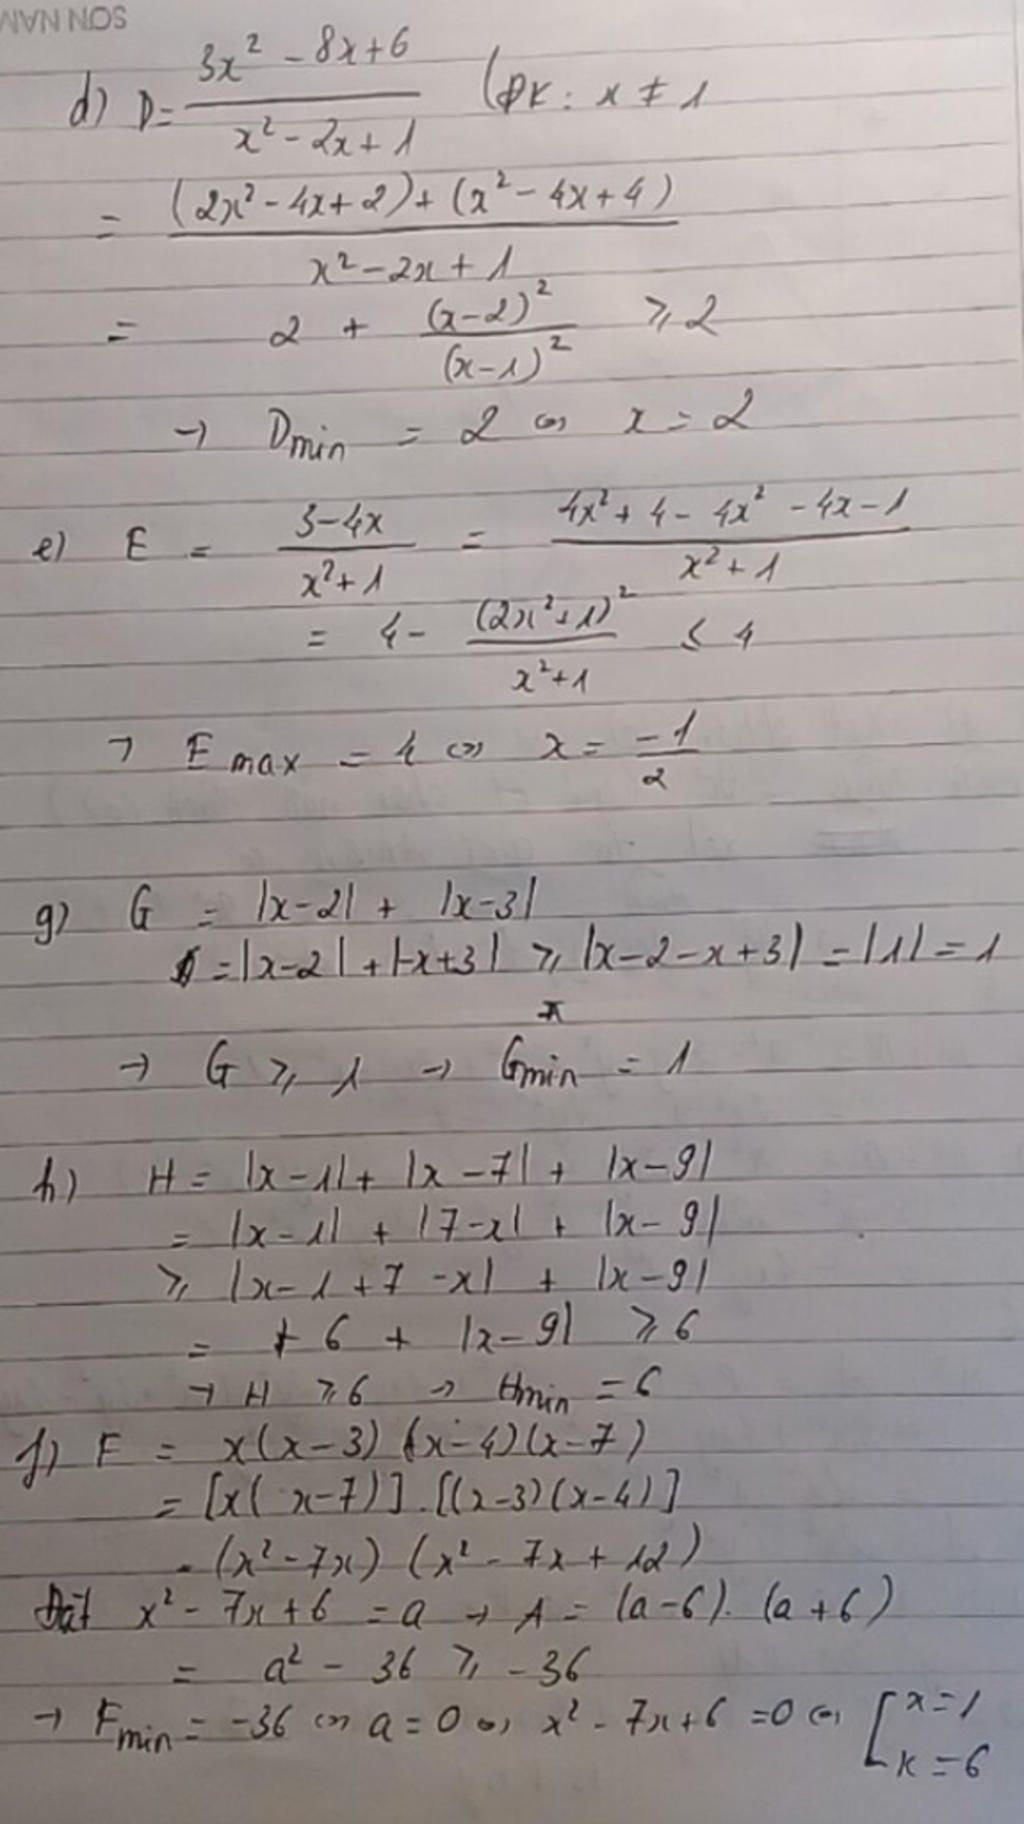 SON NAM
d) D = \frac{3x^2 - 8x + 6}{x^2 - 2x + 1} (ĐK: x ≠ 1
= \frac{(2x^2 - 4x + 2) + (x^2 - 4x + 4)}{x^2 - 2x + 1}
= 2 + \frac{(x-2)^2}{(x-1)^2} ≥ 2
→ D_{min} = 2 ⇔ x = 2
e) E = \frac{3-4x}{x^2+1} = \frac{4x^2 + 4 - 4x^2 - 4x - 1}{x^2+1}
= 4 - \frac{(2x^2+1)^2}{x^2+1} ≤ 4
→ E_{max} = 4 ⇔ x = \frac{-1}{2}
g) G = |x-2| + |x-3|
= |x-2| + |-x+3| ≥ |x-2-x+3| = |1| = 1
→ G ≥ 1 → G_{min} = 1
h) H = |x-1| + |x-7| + |x-9|
= |x-1| + |7-x| + |x-9|
≥ |x-1+7-x| + |x-9|
= 6 + |x-9| ≥ 6
→ H ≥ 6 → H_{min} = 6
f) F = x(x-3)(x-4)(x-7)
= [x(x-7)].[(x-3)(x-4)]
= (x^2-7x)(x^2-7x+12)
Đặt x^2-7x+6 = a → A = (a-6).(a+6)
= a^2 - 36 ≥ -36
→ F_{min} = -36 ⇔ a=0 ⇔ x^2-7x+6=0 ⇔ [x=1
x=6